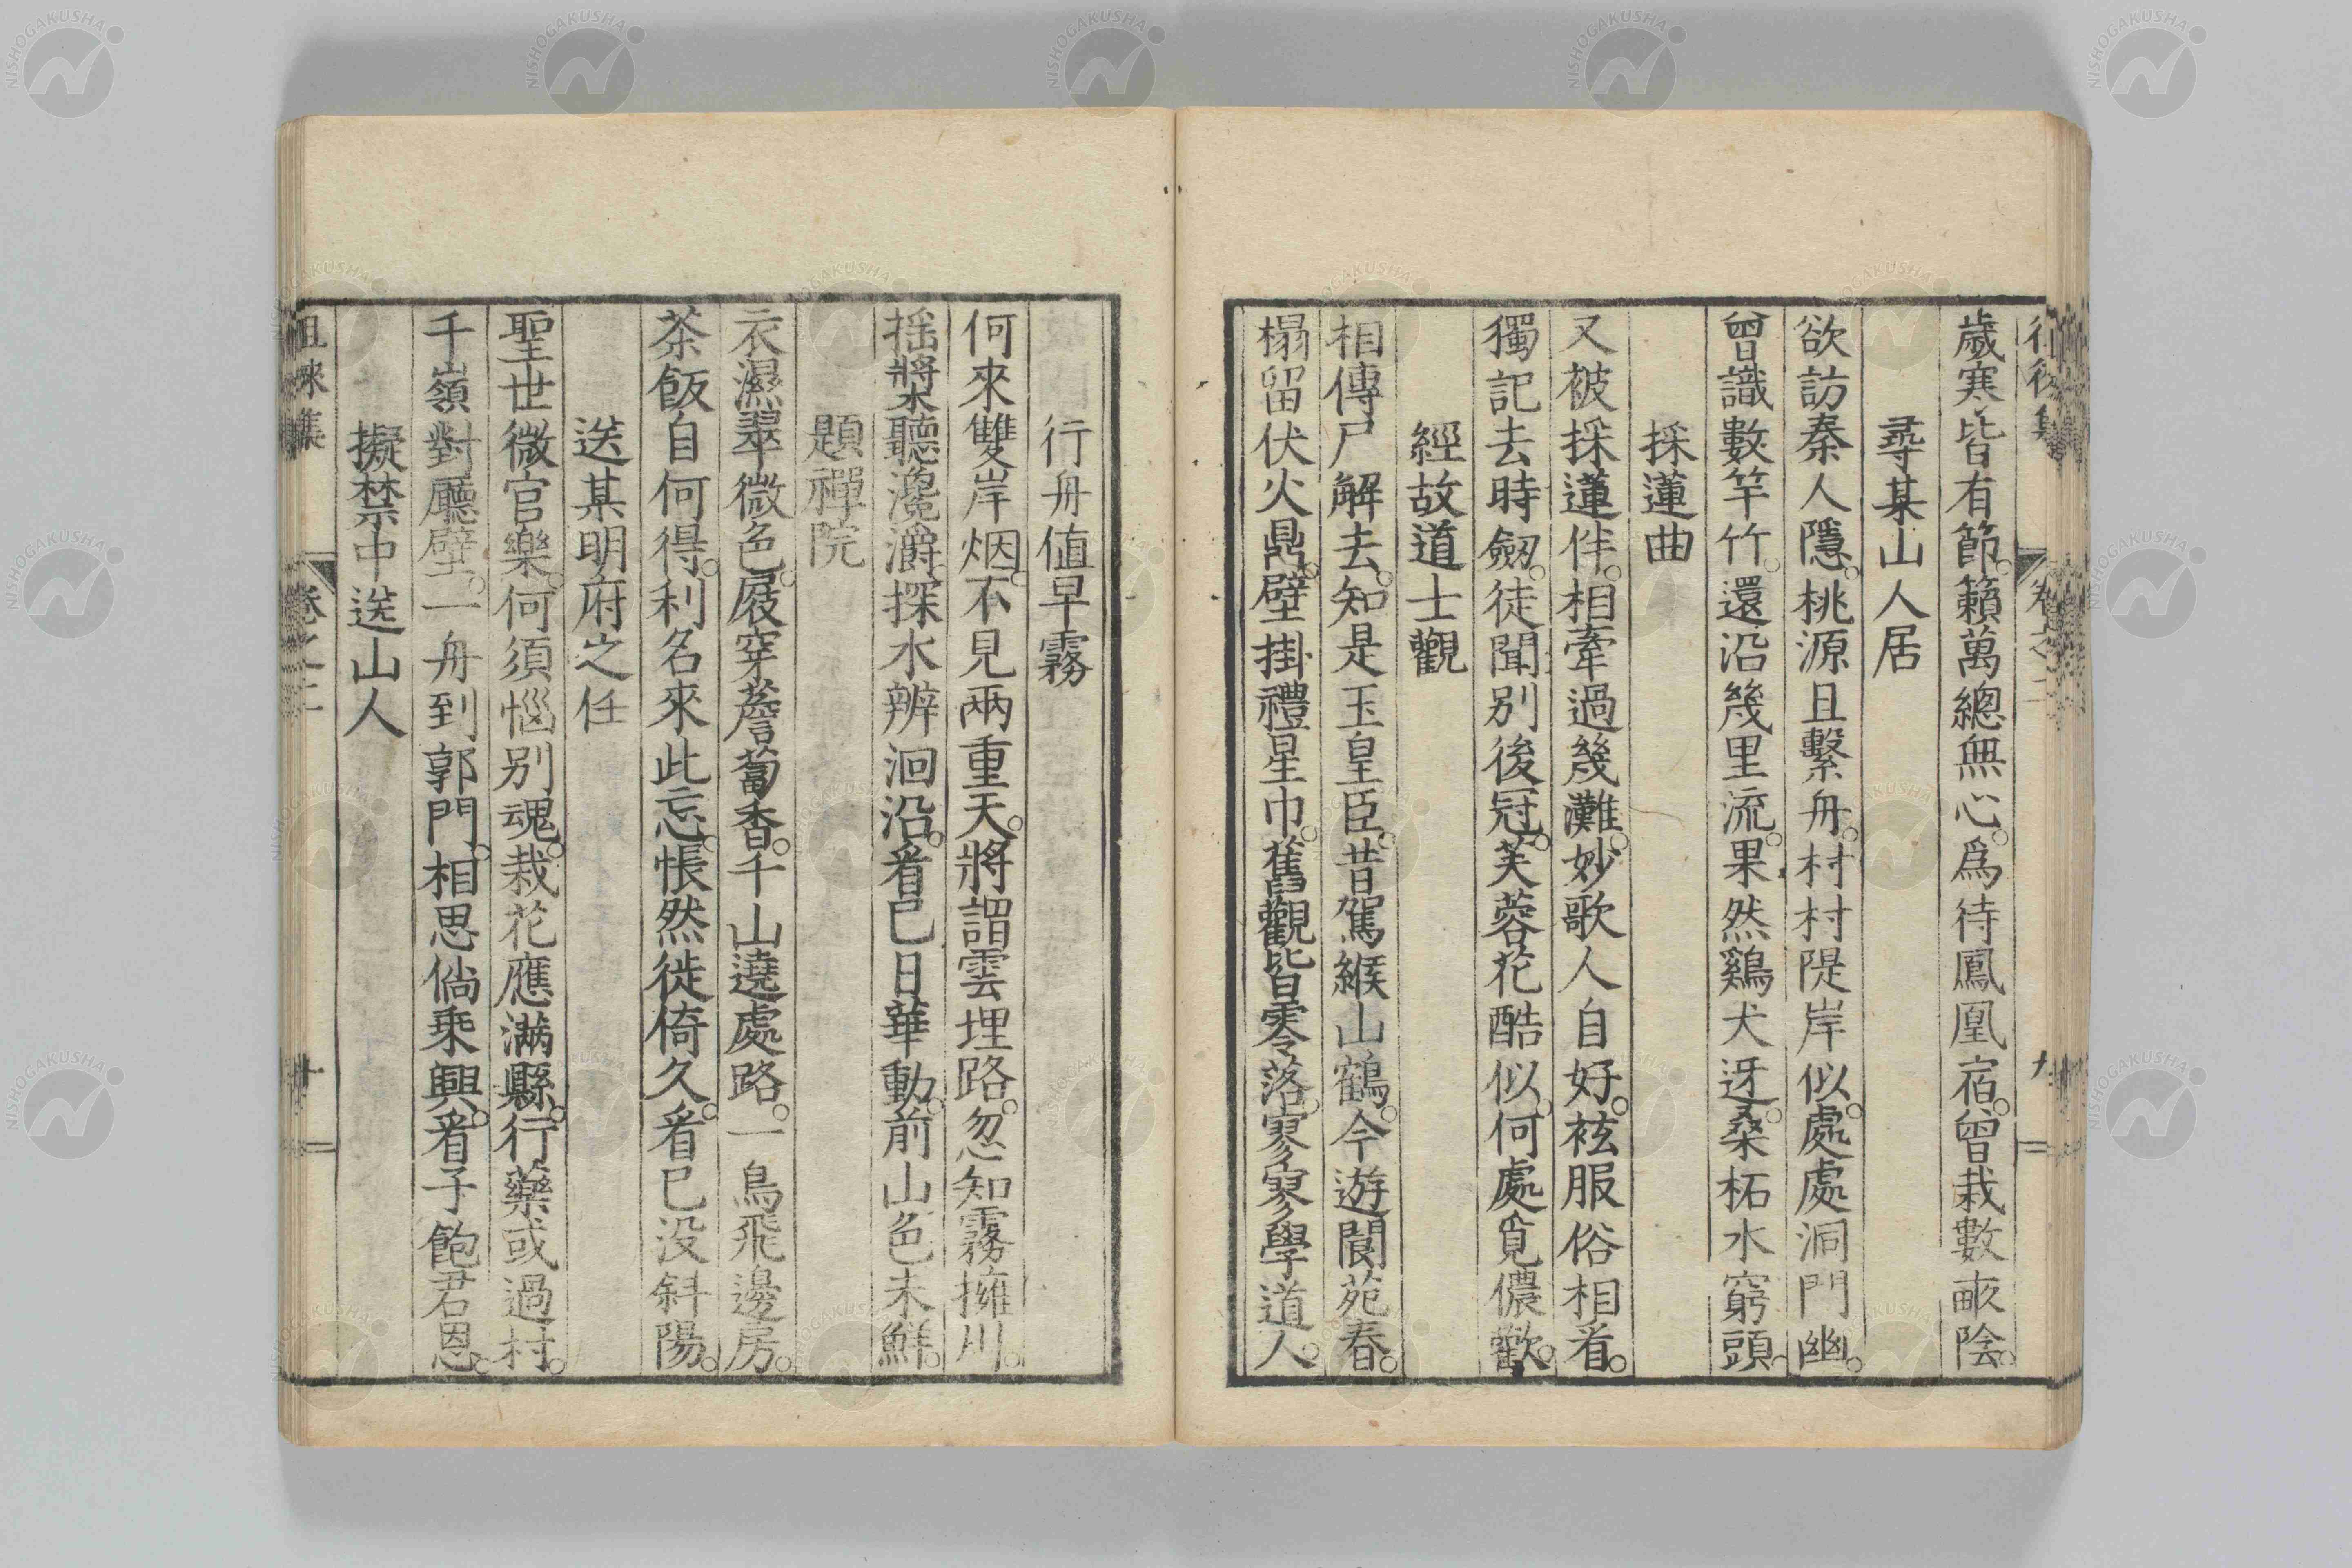 歲寒皆有節。籟萬總無心。爲待鳳凰宿。曾栽數畝陰。
尋某山人居
欲訪秦人隱。桃源且繫舟。村村隄岸似。處處洞門幽。
曾識數竿竹。還沿幾里流。果然鷄犬迓。桑柘水窮頭。
採蓮曲
又被採蓮伴。相牽過幾灘。妙歌人自好。袨服俗相看。
獨記去時劒。徒聞別後冠。芙蓉花酷似。何處覓儂歡。
經故道士觀
相傳尸解去。知是玉皇臣。昔駕緱山鶴。今遊閬苑春。
榻留伏火鼎。壁掛禮星巾。舊觀皆零落。寥寥學道人。
行舟值早霧
何來雙岸烟。不見兩重天。將謂雲埋路。忽知霧擁川。
搖槳聽瀺灂。探水辨洄沿。看已日華動。前山色未鮮。
題禪院
衣濕翠微色。屐穿薝蔔香。千山遶處路。一鳥飛邊房。
茶飯自何得。利名來此忘。悵然徙倚久。看已没斜陽。
送某明府之任
聖世微官樂。何須惱別魂。栽花應滿縣。行藥或過村。
千嶺對廳壁。一舟到郭門。相思倘乘興。看子飽君恩。
擬禁中送山人
徂徠集 卷之二 十
徂徠集 卷之二 九
NISHOGAKUSHA